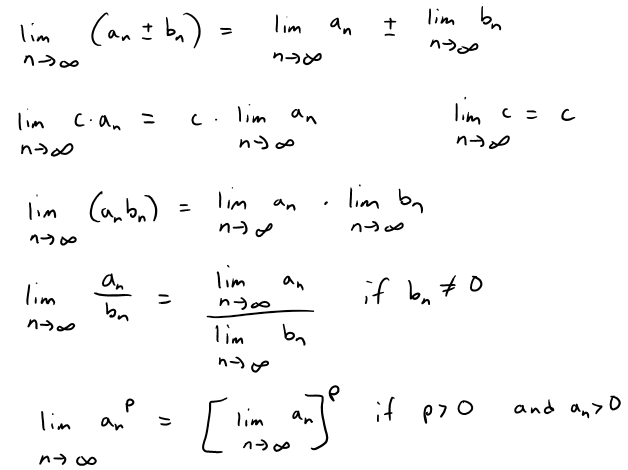 lim_{n→∞} (a_n ± b_n) = lim_{n→∞} a_n ± lim_{n→∞} b_n
lim_{n→∞} c·a_n = c · lim_{n→∞} a_n    lim_{n→∞} c = c
lim_{n→∞} (a_n b_n) = lim_{n→∞} a_n · lim_{n→∞} b_n
lim_{n→∞} a_n/b_n = (lim_{n→∞} a_n)/(lim_{n→∞} b_n) if b_n ≠ 0
lim_{n→∞} a_n^p = [lim_{n→∞} a_n]^p if p>0 and a_n>0